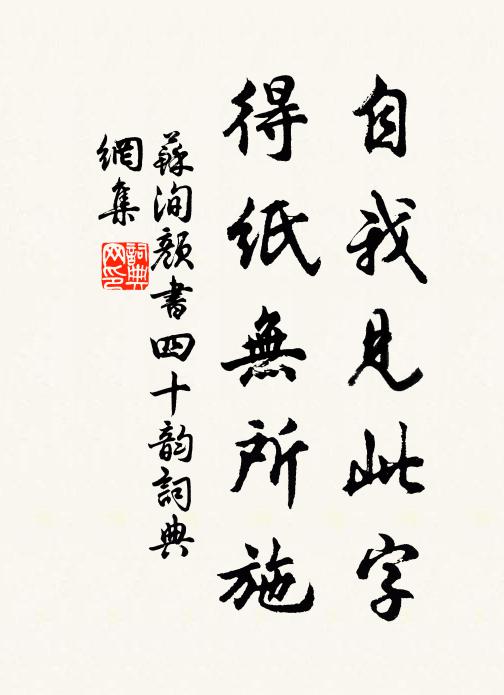 自我見此字
得紙無所施
蘇洵顏書四十韵詞典
網集
詞典网印